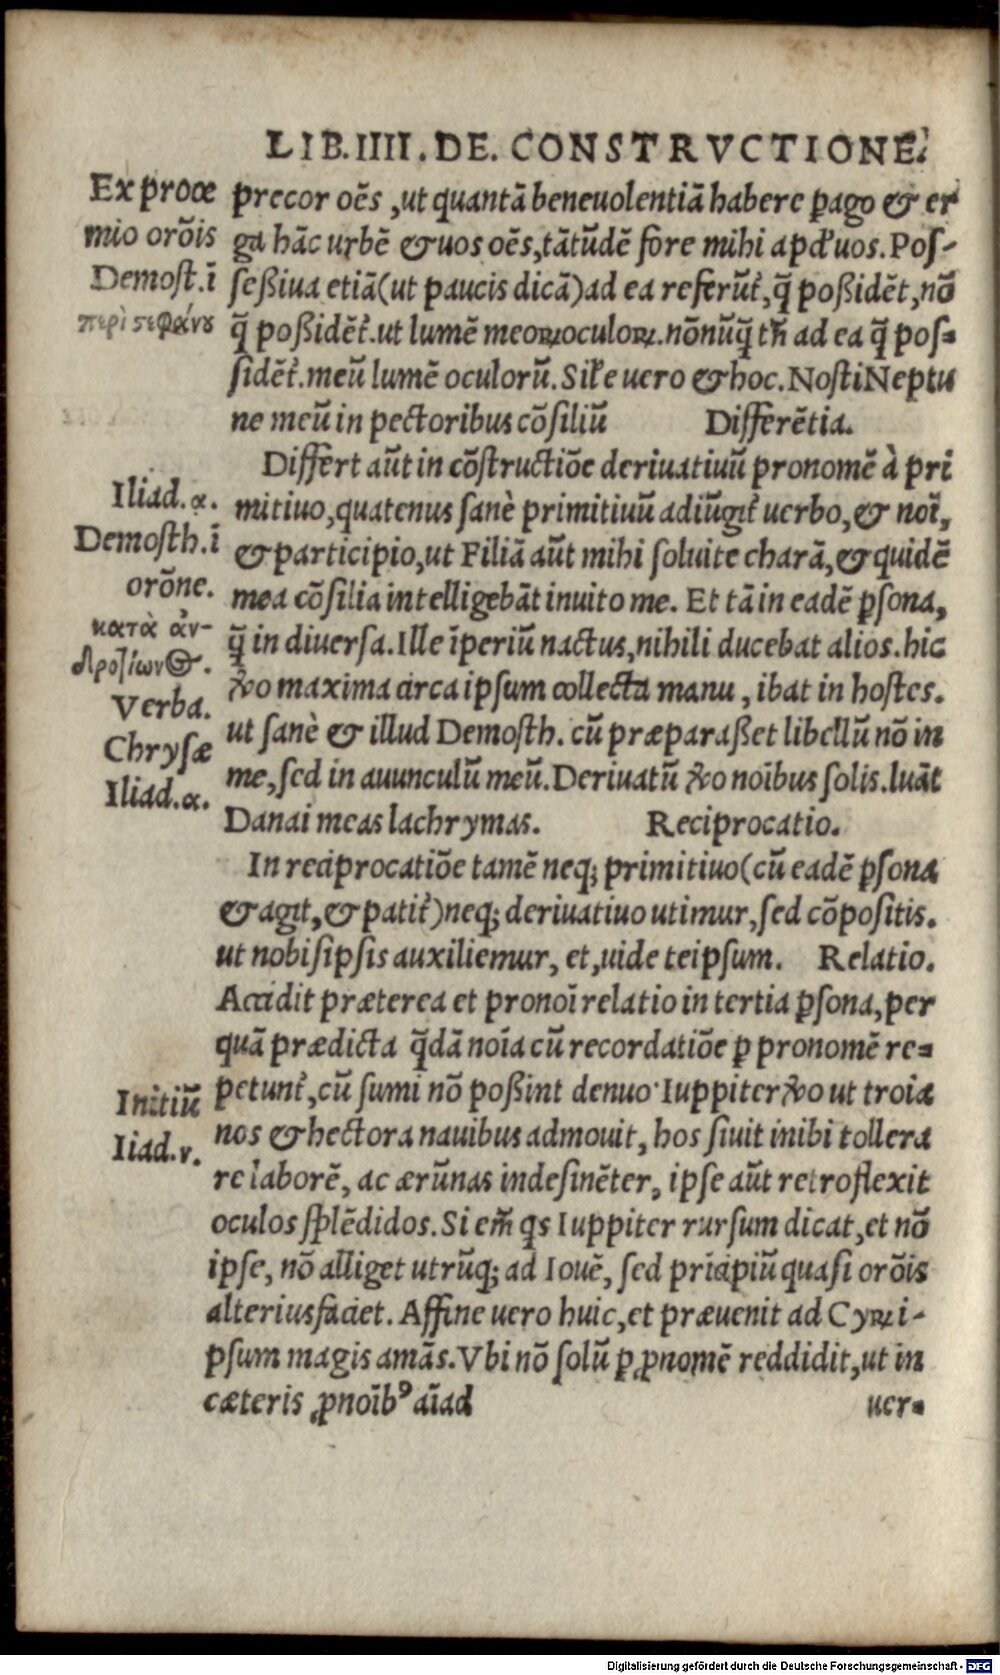 LIB.IIII.DE.CONSTRVCTIONE.
Ex proœ
mio orõis
Demost.ĩ
περὶ ϛεφάνου
precor oẽs ,ut quantã beneuolentiã habere ꝑago & er
ga hãc urbẽ &uos oẽs,tãtũdẽ fore mihi apđ uos. Pos-
seßiua etiã(ut paucis dicã)ad ea referũt᷑,q̃ poßidẽt,nõ
q̃ poßidẽt᷑.ut lumẽ meoꝝoculoꝝ.nõnũq̃ tñ ad ea q̃ pos=
sidẽt᷑.meũ lumẽ oculorũ. Siłe uero &hoc. NostiNeptu
ne meũ in pectoribus cõsiliũ Differẽtia.
Iliad.α.
Demosth.ĩ
orõne.
κατὰ ἀν-
δροτίωνος.
Verba.
Chrysæ
Iliad.α.
Differt aũt in cõstructiõe deriuatiuũ pronomẽ à pri
mitiuo,quatenus sanè primitiuũ adiũgit᷑ uerbo,& noĩ,
& participio,ut Filiã aũt mihi soluite charã,& quidẽ
mea cõsilia intelligebãt inuito me. Et tã in eadẽ ꝑsona,
q̃ in diuersa. Ille ĩperiũ nactus,nihili ducebat alios.hic
ꝟo maxima circa ipsum collecta manu , ibat in hostes.
ut sanè & illud Demosth. cũ præparaßet libellũ nõ in
me,sed in auunculũ meũ.Deriuatũ ꝟo noĩbus solis.luãt
Danai meas lachrymas. Reciprocatio.
In reciprocatiõe tamẽ neq; primitiuo(cũ eadẽ ꝑsona
& agit,& patit᷑)neq; deriuatiuo utimur,sed cõpositis.
ut nobisipsis auxiliemur, et,uide teipsum. Relatio.
Accidit præterea et pronoĩ relatio in tertia ꝑsona,per
quã prædicta q̃dã noĩa cũ recordatiõe ꝑ pronomẽ re=
Initiũ
Iliad.ν.
petunt᷑,cũ sumi nõ poßint denuo·Iuppiter ꝟo ut troia
nos & hectora nauibus admouit, hos siuit inibi tollera
re laborẽ, ac ærũnas indesinẽter, ipse aũt retroflexit
oculos splẽdidos. Si em̃ qs Iuppiter rursum dicat,et nõ
ipse, nõ alliget utrũq; ad Iouẽ, sed prĩcipiũ quasi orõis
alterius faciet. Affine uero huic,et præuenit ad Cyꝝ i-
psum magis amãs.Vbi nõ solũ ꝑ ꝓnomẽ reddidit,ut in
cæteris ꝓnoĩbꝰ aĩad
uer=
Digitalisierung gefördert durch die Deutsche Forschungsgemeinschaft - DFG